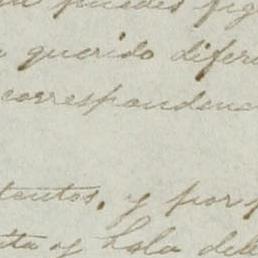 puedes fig
querido difer
correspondenc
tentos, y por
ita y Lola del